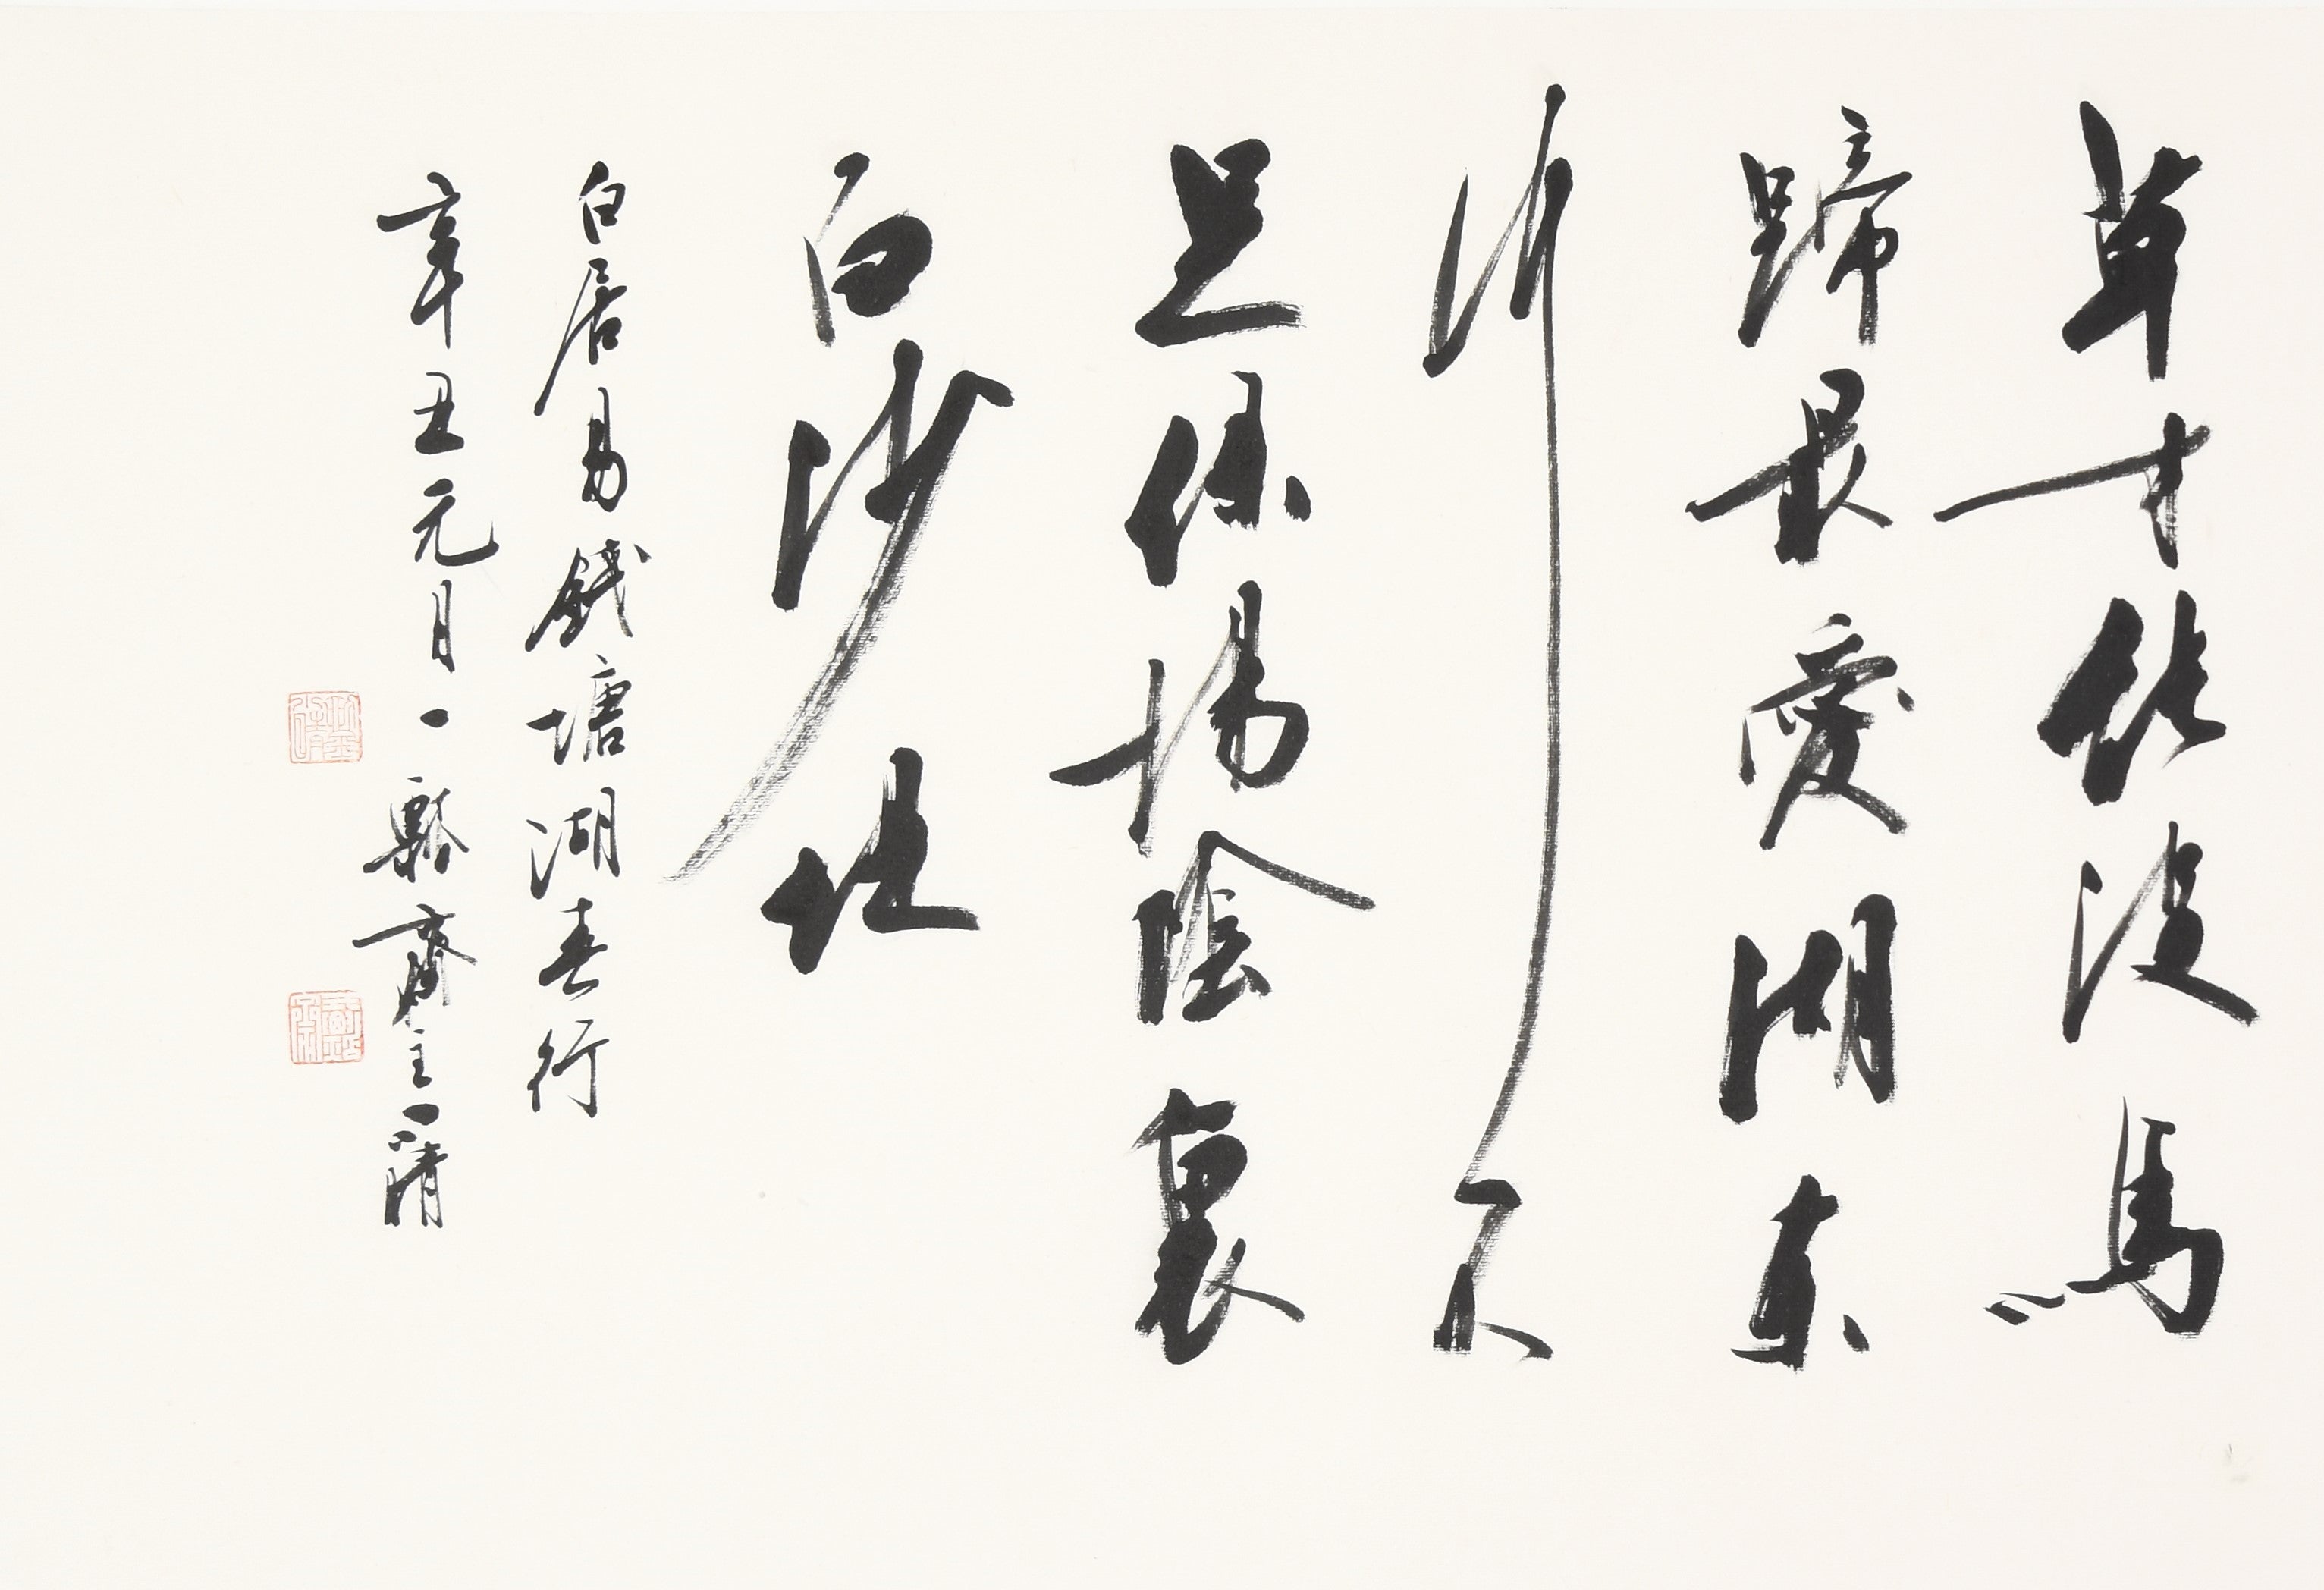 草才能没馬
蹄最愛湖东
行不
足緑楊陰裏
白沙堤
白居易錢塘湖春行
辛丑元月一瓢齋主一